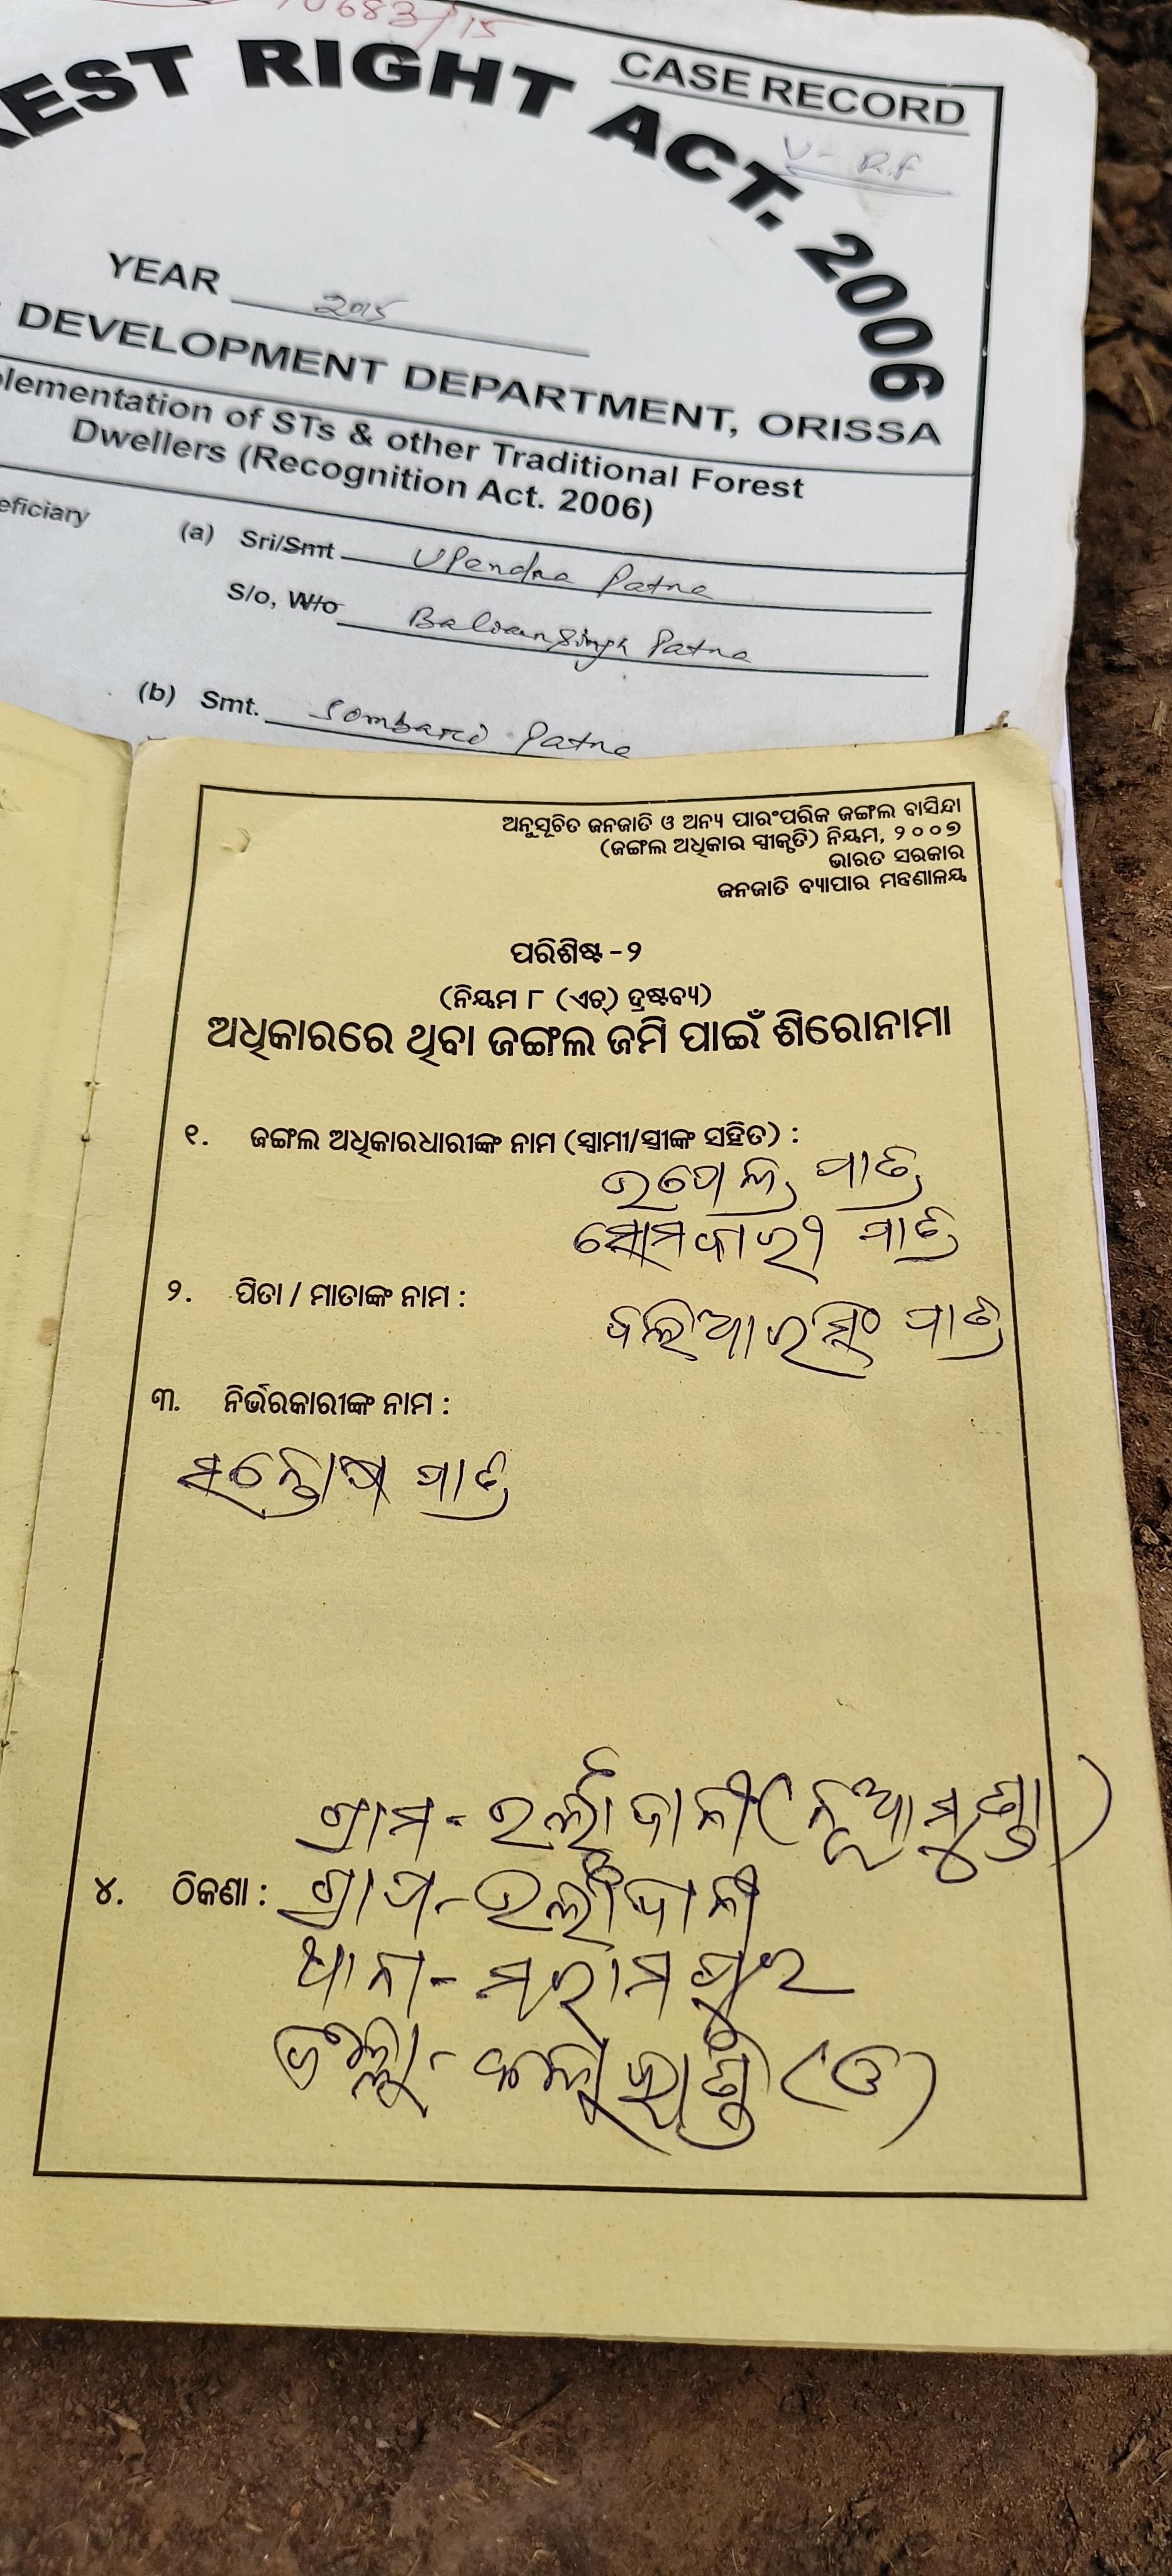 70683/15
EST RIGHT ACT. 2006
CASE RECORD
V- R.F
YEAR 2015
DEVELOPMENT DEPARTMENT, ORISSA
plementation of STs & other Traditional Forest
Dwellers (Recognition Act. 2006)
eficiary (a) Sri/Smt Upendra Patra
S/o, W/o Baliarsingh Patra
(b) Smt. Sombarci Patra
ଅନୁସୂଚିତ ଜନଜାତି ଓ ଅନ୍ୟ ପାରଂପରିକ ଜଙ୍ଗଲ ବାସିନ୍ଦା
(ଜଙ୍ଗଲ ଅଧିକାର ସ୍ୱୀକୃତି) ନିୟମ, ୨୦୦୭
ଭାରତ ସରକାର
ଜନଜାତି ବ୍ୟାପାର ମନ୍ତ୍ରଣାଳୟ
ପରିଶିଷ୍ଟ-୨
(ନିୟମ ୮ (ଏଚ୍) ଦ୍ରଷ୍ଟବ୍ୟ)
ଅଧିକାରରେ ଥିବା ଜଙ୍ଗଲ ଜମି ପାଇଁ ଶିରୋନାମା
୧. ଜଙ୍ଗଲ ଅଧିକାରଧାରୀଙ୍କ ନାମ (ସ୍ୱାମୀ/ସ୍ତ୍ରୀଙ୍କ ସହିତ) :
ଉପେନ୍ଦ୍ର ପାତ୍ର
ସୋମବାରୀ ପାତ୍ର
୨. ପିତା / ମାତାଙ୍କ ନାମ :
ବଲିଆରସିଂ ପାତ୍ର
୩. ନିର୍ଭରକାରୀଙ୍କ ନାମ :
ସନ୍ତୋଷ ପାତ୍ର
ଗ୍ରାମ- (ନୂଆମୁଣ୍ଡା)
୪. ଠିକଣା : ଗ୍ରାପ-
ଥାନା-
ଜିଲ୍ଲା- କଳାହାଣ୍ଡି (ଓ)